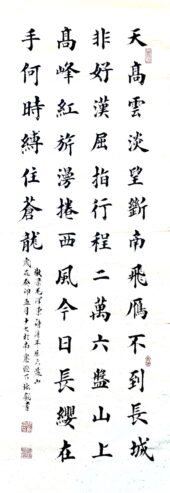 天髙雲淡望斷南飛鴈不到長城
非好漢屈指行程二萬六盤山上
髙峰紅旂漫捲西風今日長纓在
手何時縛住蒼龍
敬录毛澤東詩清平樂六盤山
歲在癸卯